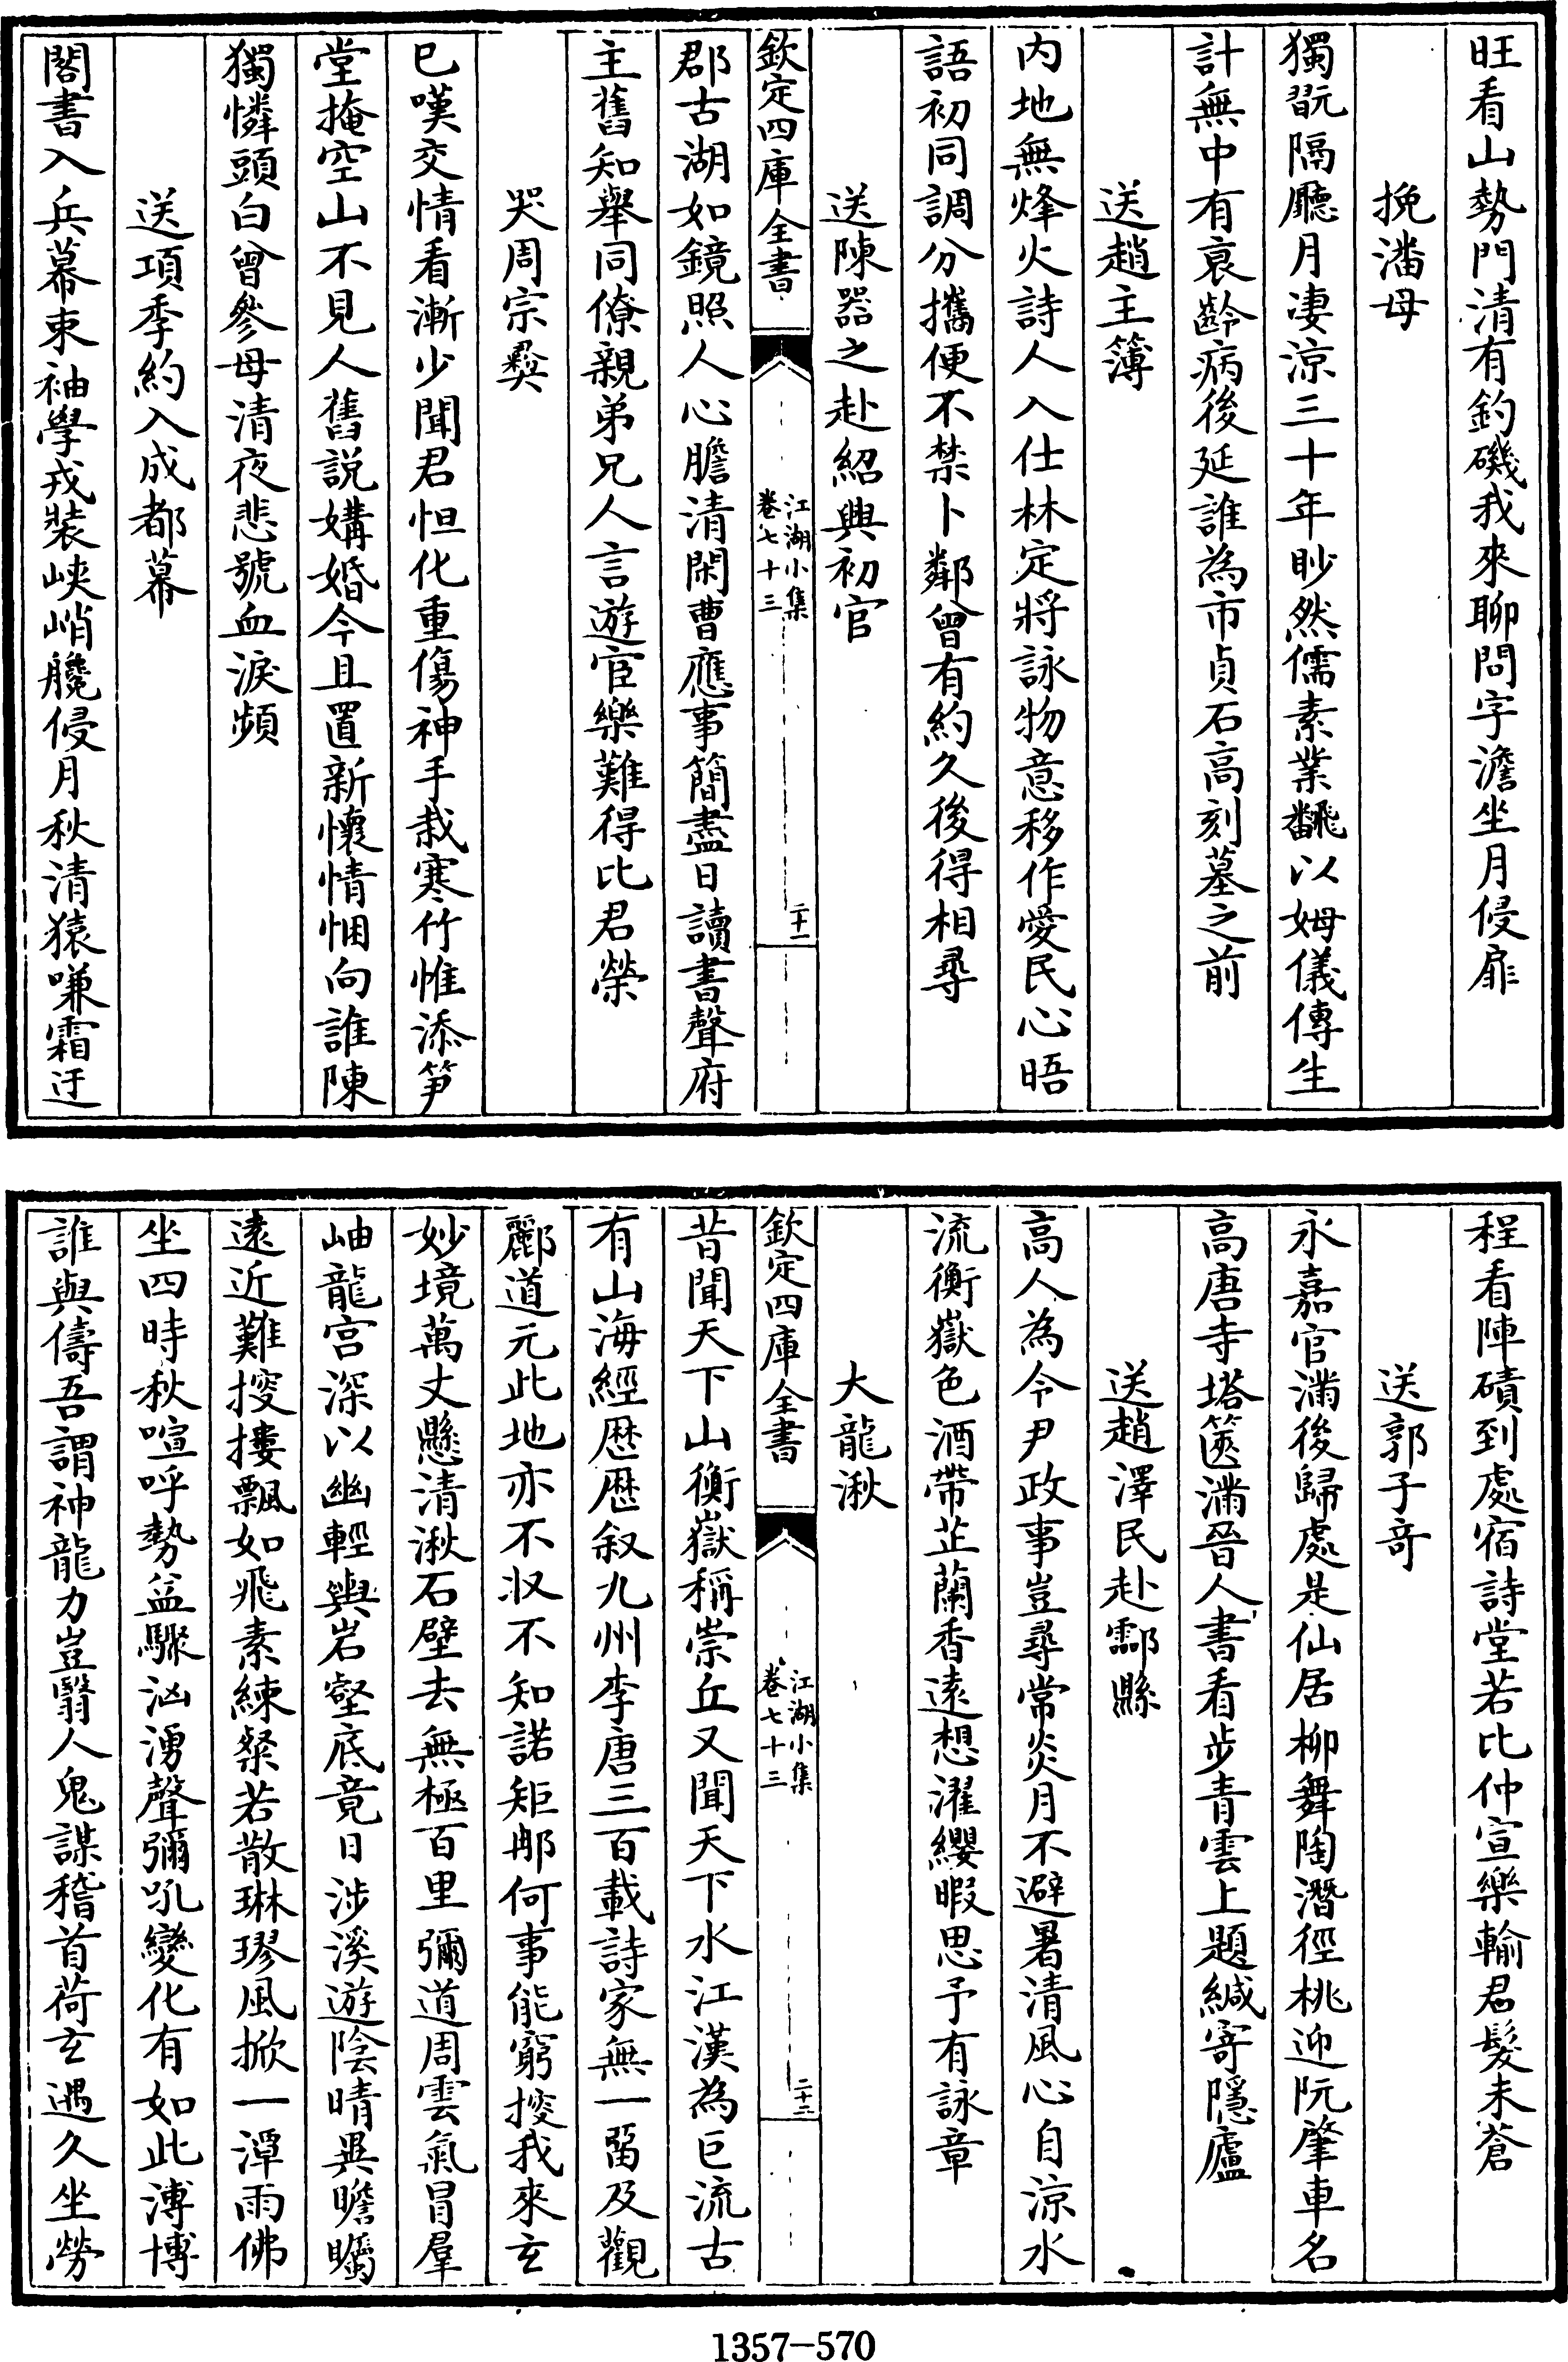 旺看山勢門清有釣磯我來聊問字澹坐月侵扉
挽潘母
獨翫隔廳月凄涼三十年眇然儒素業飜以姆儀傳生
計無中有衰齡病後延誰為市貞石高刻墓之前
送趙主簿
内地無烽火詩人入仕林定將詠物意移作愛民心晤
語初同調分攜便不禁卜鄰曾有約久後得相尋
送陳器之赴紹興初官
欽定四庫全書
江湖小集
卷七十三
二十一
郡古湖如鏡照人心膽清閑曹應事簡盡日讀書聲府
主舊知舉同僚親弟兄人言遊宦樂難得比君榮
哭周宗彝
已嘆交情看漸少聞君怛化重傷神手栽寒竹惟添笋
堂掩空山不見人舊說媾婚今且置新懷情悃向誰陳
獨憐頭白曾參母清夜悲號血淚頻
送項季約入成都幕
閣書入兵幕束袖學戎裝峽峭艬侵月秋清猿嗛霜迂
程看陣磧到處宿詩堂若比仲宣樂輸君髮未蒼
送郭子奇
永嘉官滿後歸處是仙居柳舞陶潛徑桃迎阮肇車名
高唐寺塔篋滿晉人書看步青雲上題緘寄隱廬
送趙澤民赴酃縣
高人為令尹政事豈尋常炎月不避暑清風心自涼水
流衡嶽色酒帶芷蘭香遠想濯纓暇思予有詠章
大龍湫
欽定四庫全書
江湖小集
卷七十三
二十二
昔聞天下山衡嶽稱崇丘又聞天下水江漢為巨流古
有山海經歷歷叙九州李唐三百載詩家無一留及觀
酈道元此地亦不收不知諾矩那何事能窮搜我來玄
妙境萬丈懸清湫石壁去無極百里彌道周雲氣冒羣
岫龍宫深以幽輕輿岩壑底竟日涉溪遊陰晴異瞻矚
遠近難搜摟飄如飛素練粲若散琳璆風掀一潭雨佛
坐四時秋喧呼勢益驟汹湧聲彌吼變化有如此溥博
誰與儔吾謂神龍力豈翳人鬼謀稽首荷玄遇久坐勞
1357-570